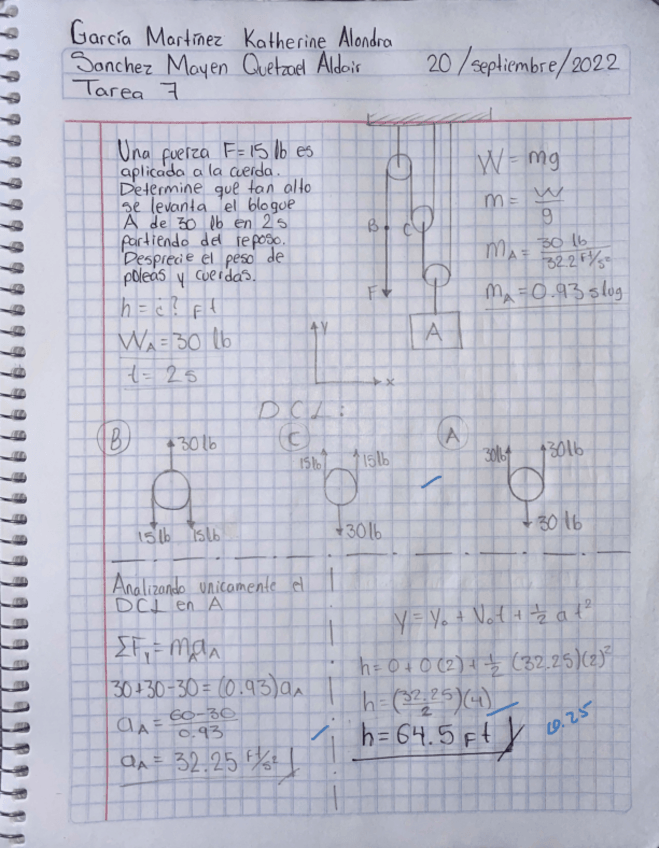 García Martínez Katherine Alondra
Sanchez Mayen Quetzael Aldair 20/septiembre/2022
Tarea 7
Una fuerza F=15 lb es
aplicada a la cuerda.
Determine que tan alto
se levanta el bloque
A de 30 lb en 2s
partiendo del reposo.
Desprecie el peso de
poleas y cuerdas.
h = ¿? Ft
W_A = 30 lb
t = 2s
B
C
F
A
y
x
W = mg
m = W/g
m_A = 30 lb / 32.2 Ft/s²
m_A = 0.93 slug
DCL:
B
30 lb
15 lb 15 lb
C
15lb 15 lb
30 lb
A
30lb 30 lb
30 lb
Analizando unicamente el
DCL en A
ΣF_y = m_A a_A
30+30-30 = (0.93) a_A
a_A = 60-30 / 0.93
a_A = 32.25 Ft/s²
y = y₀ + V₀t + 1/2 a t²
h = 0 + 0(2) + 1/2 (32.25)(2)²
h = (32.25/2)(4)
h = 64.5 Ft